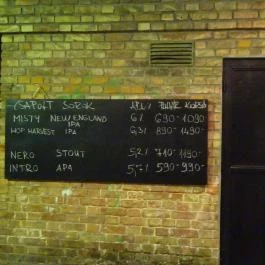 CSAPOLT SÖRÖK ALK.% POHÁR KORSÓ
MISTY NEW ENGLAND IPA 6% 690- 1090-
HOP HARVEST IPA 6,3% 890- 1490-
NERO STOUT 5,2% 710- 1190-
INTRO APA 5,7% 590- 990-